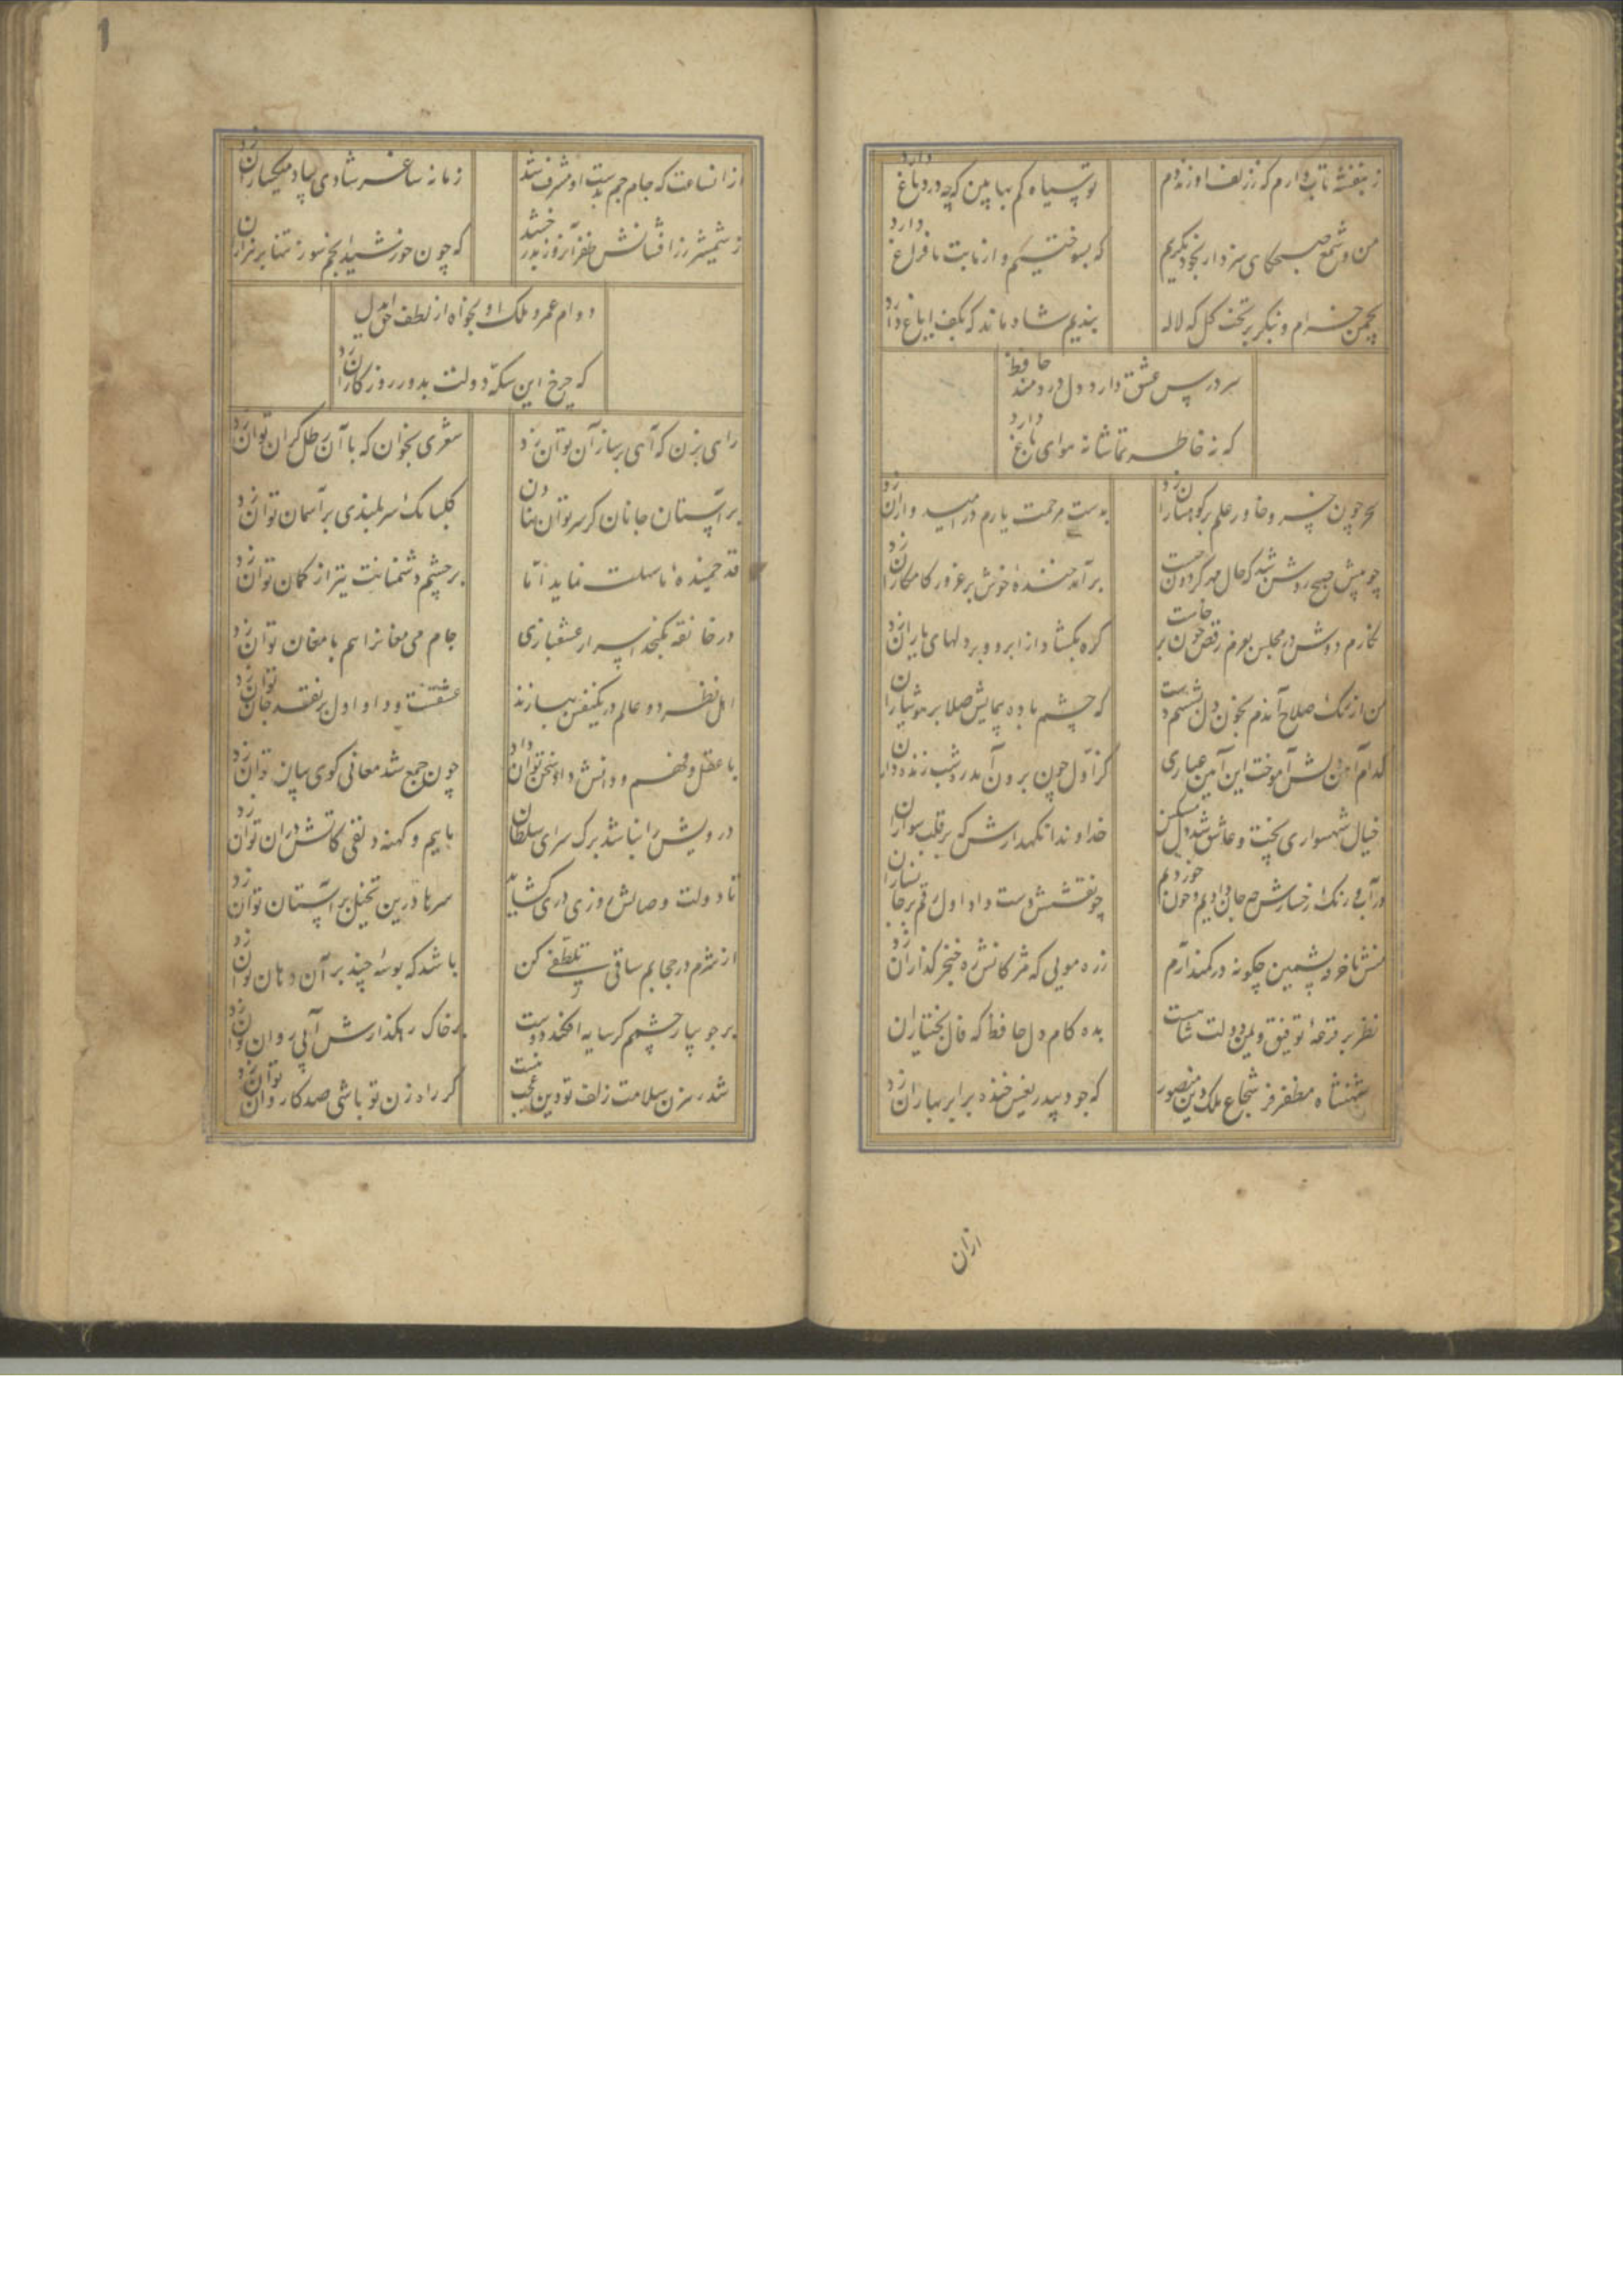 ز بنفشه تاب دارم که ز زلف او زند دم
تو سیاه کم بها بین که چه در دماغ دارد
من و شمع صبحگاهی سزد ار بخود بگریم
که بسوختیم و از ما بت ما فراغ دارد
بچمن خرام و بنگر بر تخت گل که لاله
بندیم شاه ماند که بکف ایاغ دارد
سر درس عشق دارد دل دردمند حافظ
که نه خاطر تماشا نه هوای باغ دارد
سحر چون خسرو خاور علم بر کوهساران زد
بدست مرحمت یارم در امیدواران زد
چو پیش صبح روشن شد که حال مهر گردون چیست
برآمد خنده خوش بر غرور کامکاران زد
نگارم دوش در مجلس بعزم رقص چون برخاست
گره بگشاد از ابرو و بر دلهای یاران زد
من از رنگ صلاح آندم بخون دل بشستم دست
که چشم باده پیمایش صلا بر هوشیاران
کدام آهن دلش آموخت این آیین عیاری
کز اول چون برون آمد ره شب زنده داران
خیال شهسواری پخت و عاشق شد دل مسکین
خداوندا نگهدارش که بر قلب سواران
در آب و رنگ رخسارش چه جان دادیم و خون خوردیم
چو نقشش دست داد اول رقم بر جانسپاران
منش با خرقه پشمین چگونه در کمند آرم
زره مویی که مژگانش ره خنجرگذاران زد
نظر بر قرعه توفیق و یمن دولت شاهست
بده کام دل حافظ که فال بختیاران
شهنشاه مظفر فر شجاع ملک و دین منصور
که جود بیدریغش خنده بر ابر بهاران زد
ازان
1
از انساعت که جام جم بدست او مشرف شد
زمانه ساغر شادی بیاد میکساران زد
ز شمشیر زرافشانش ظفر آنروز بدرخشید
که چون خورشید انجم سوز تنها بر هزاران
دوام عمر و ملک او بخواه از لطف حق ایدل
که چرخ این سکه دولت بدور روزکاران زد
راهی بزن که آهی بر ساز آن توان زد
شعری بخوان که با آن رطل گران توان زد
بر آستان جانان گر سر توان نهادن
گلبانگ سربلندی بر آسمان توان زد
قد خمیده ما سهلت نماید اما
بر چشم دشمنانت تیر از کمان توان زد
در خانقه نگنجد اسرار عشقبازی
جام می مغانرا هم با مغان توان زد
اهل نظر دو عالم در یکنفس ببازند
عشقست و داو اول بر نقد جان توان زد
با عقل و فهم و دانش داد سخن توان داد
چون جمع شد معانی گوی بیان توان زد
درویش را نباشد برک سرای سلطان
ماییم و کهنه دلقی کاتش دران توان زد
تا دولت وصالش روزی دری گشاید
سرها درین تخیل بر آستان توان زد
از شرم در حجابم ساقی تلطفی کن
باشد که بوسه چند بر آن دهان توان زد
بر جویبار چشمم گر سایه افکند دوست
بر خاک رهگذارش آبی روان توان زد
شد رهزن سلامت زلف تو وین عجب نیست
گر راه زن تو باشی صد کاروان توان زد